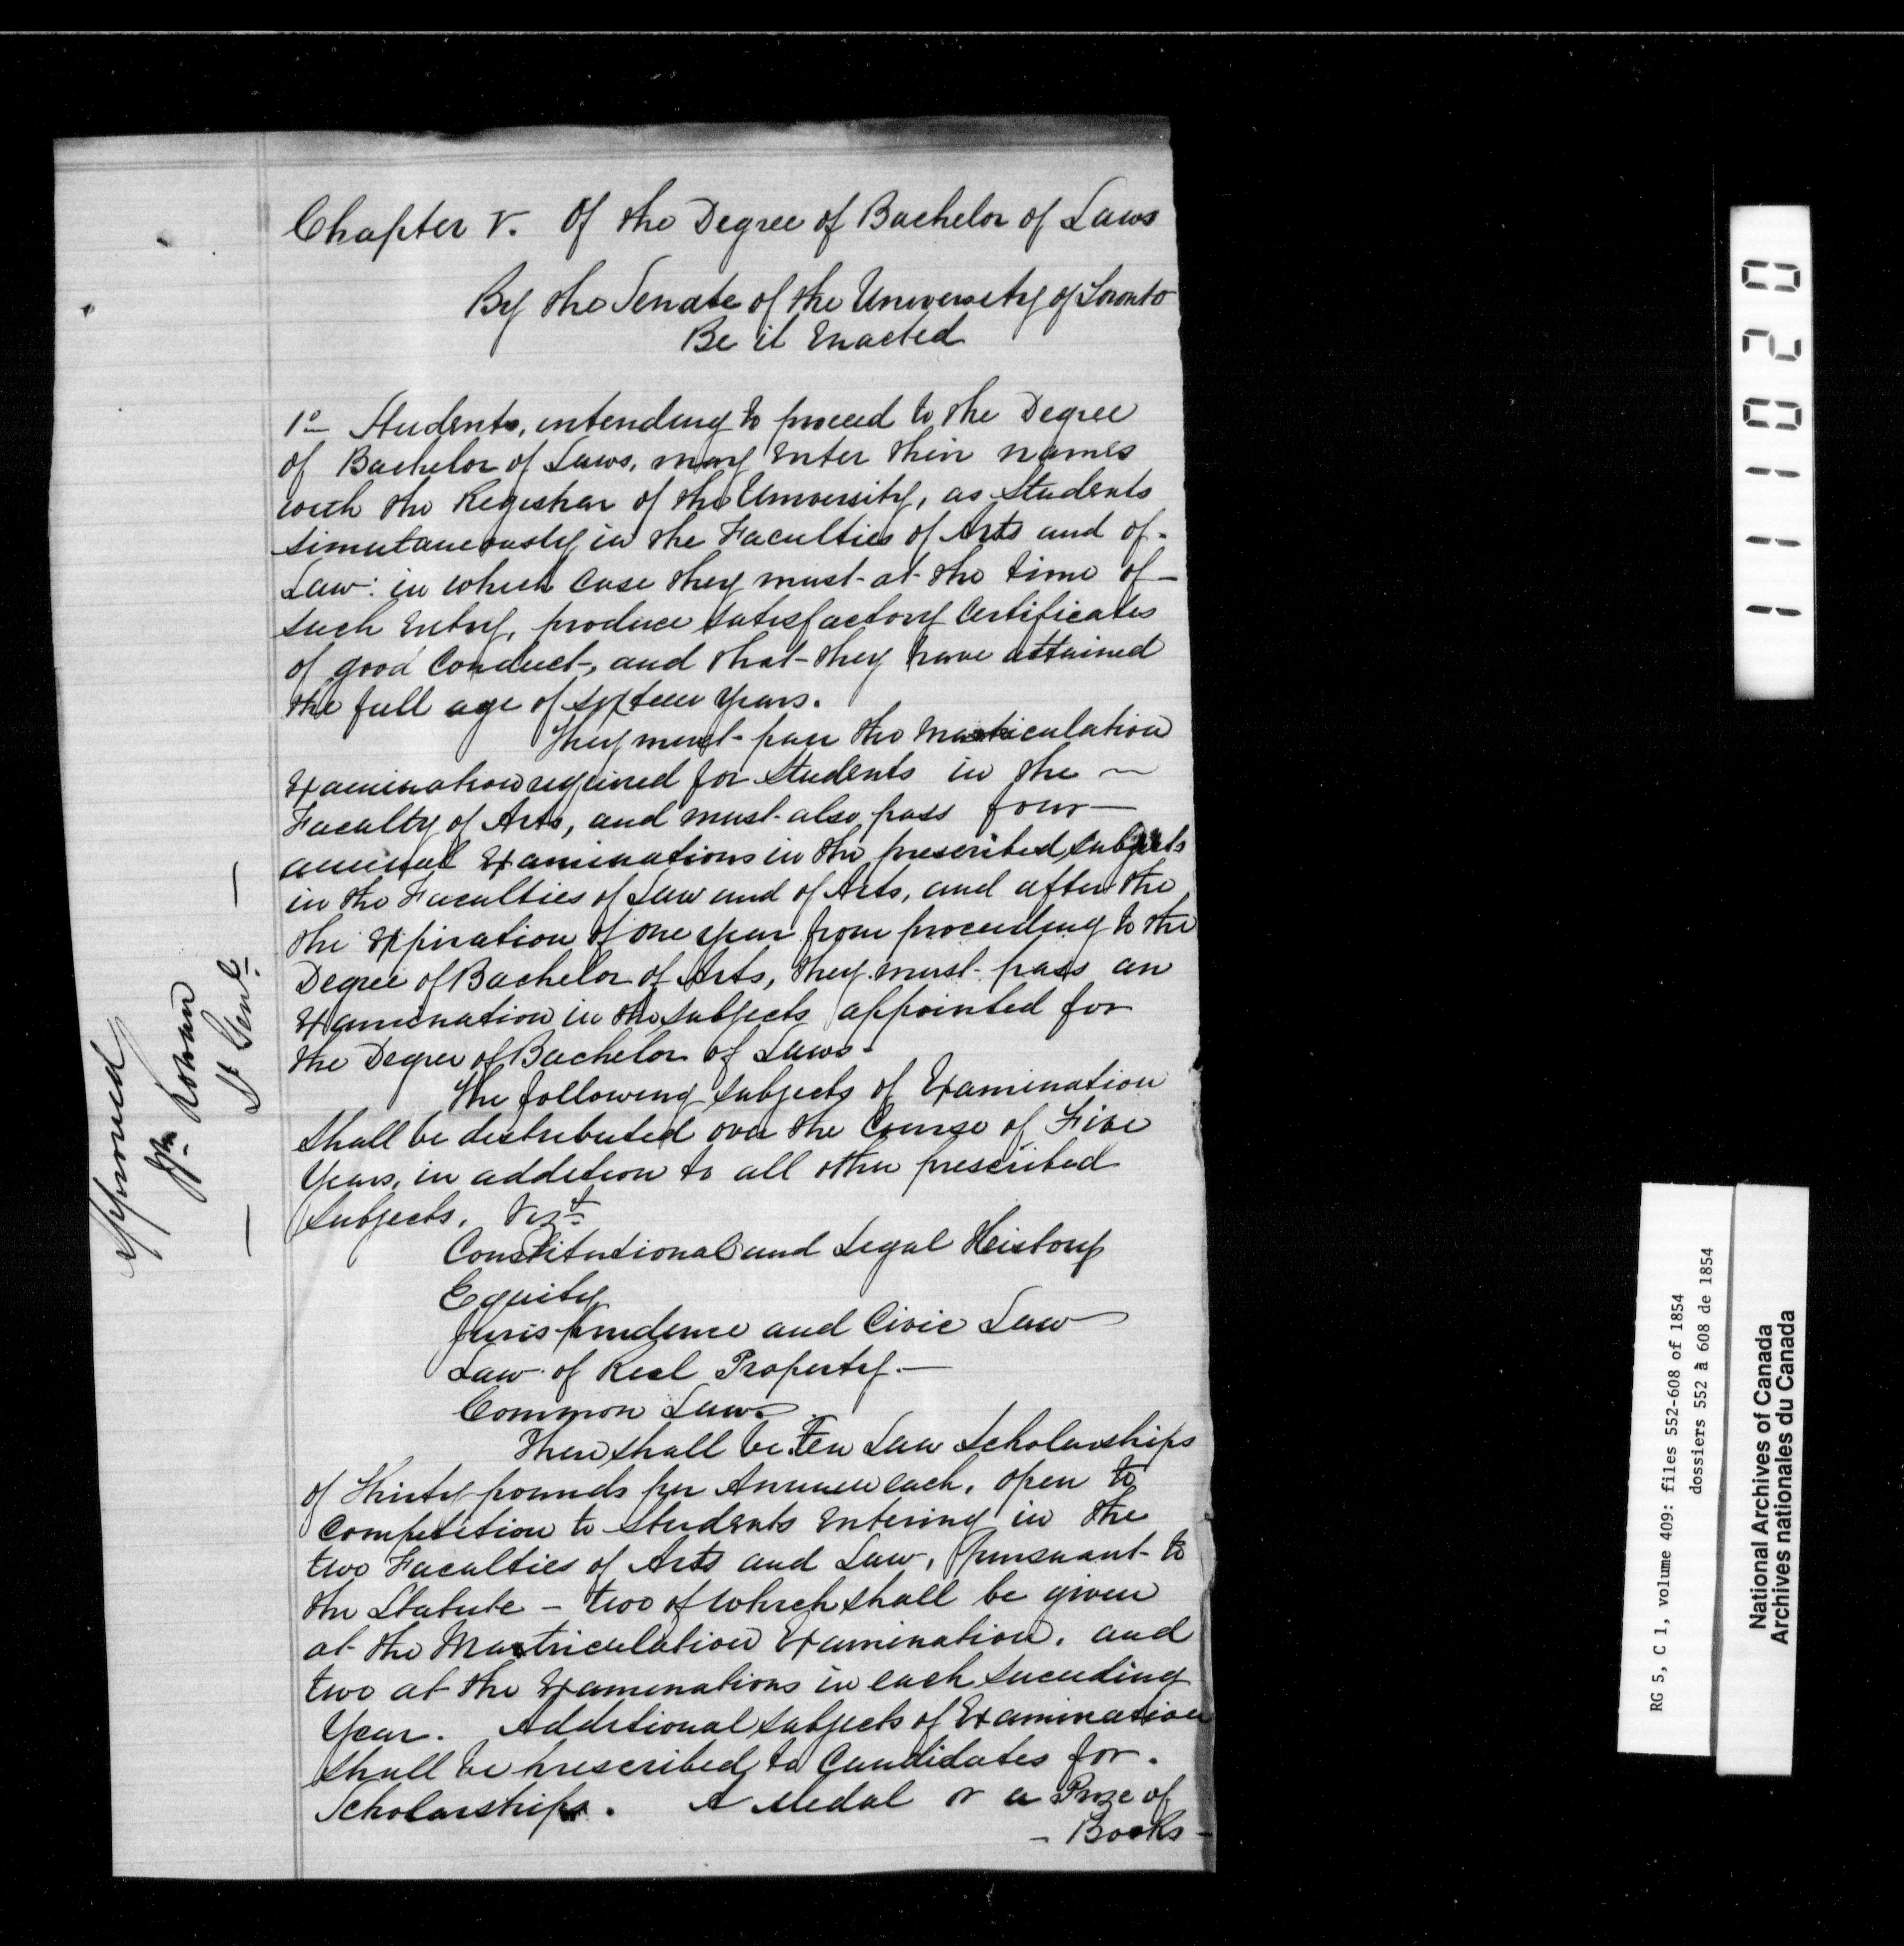 Chapter V. Of the Degree of Bachelor of Laws
By the Senate of the University of Toronto
Be it Enacted
1o Students, intending to proceed to the Degree
of Bachelor of Laws, may Enter their names
with the Registrar of the University, as Students
simutaneously in the Faculties of Arts and of -
Law: in which Case they must at the time of -
such Entry, produce satisfactory Certificates
of good Conduct, and that they have attained
the full age of sixteen years.
They must pass the Matriculation
Examination required for Students in the ~
Faculty of Arts, and must also pass four -
annual Examinations in the prescribed subjects
in the Faculties of Law and of Arts, and after the
the Expiration of one year from proceeding to the
Degree of Bachelor of Arts, they must pass an
Examination in the subjects appointed for
the Degree of Bachelor of Laws -
The following subjects of Examination
shall be distributed over the Course of Five
Years, in addition to all other prescribed
Subjects, Vizt
Constitutional and Legal Heistory
Equity
Jurisprudence and Civic Law
Law of Real Property. -
Common Law.
There shall be Ten Law Scholarships
of Thirty pounds per Annum each, open to
Competition to Students Entering in the
two Faculties of Arts and Law, pursuant to
the Statute - two of which shall be given
at the Matriculation Examination, and
two at the Examinations in each suceeding
Year. Additional subjects of Examination
shall be prescribed to Candidates for -
Scholarships. A Medal or a Prize of
- Books -
Approved
Wm Rowan
Lt Genl
111020
RG 5, C 1, volume 409: files 552-608 of 1854
dossiers 552 à 608 de 1854
National Archives of Canada
Archives nationales du Canada